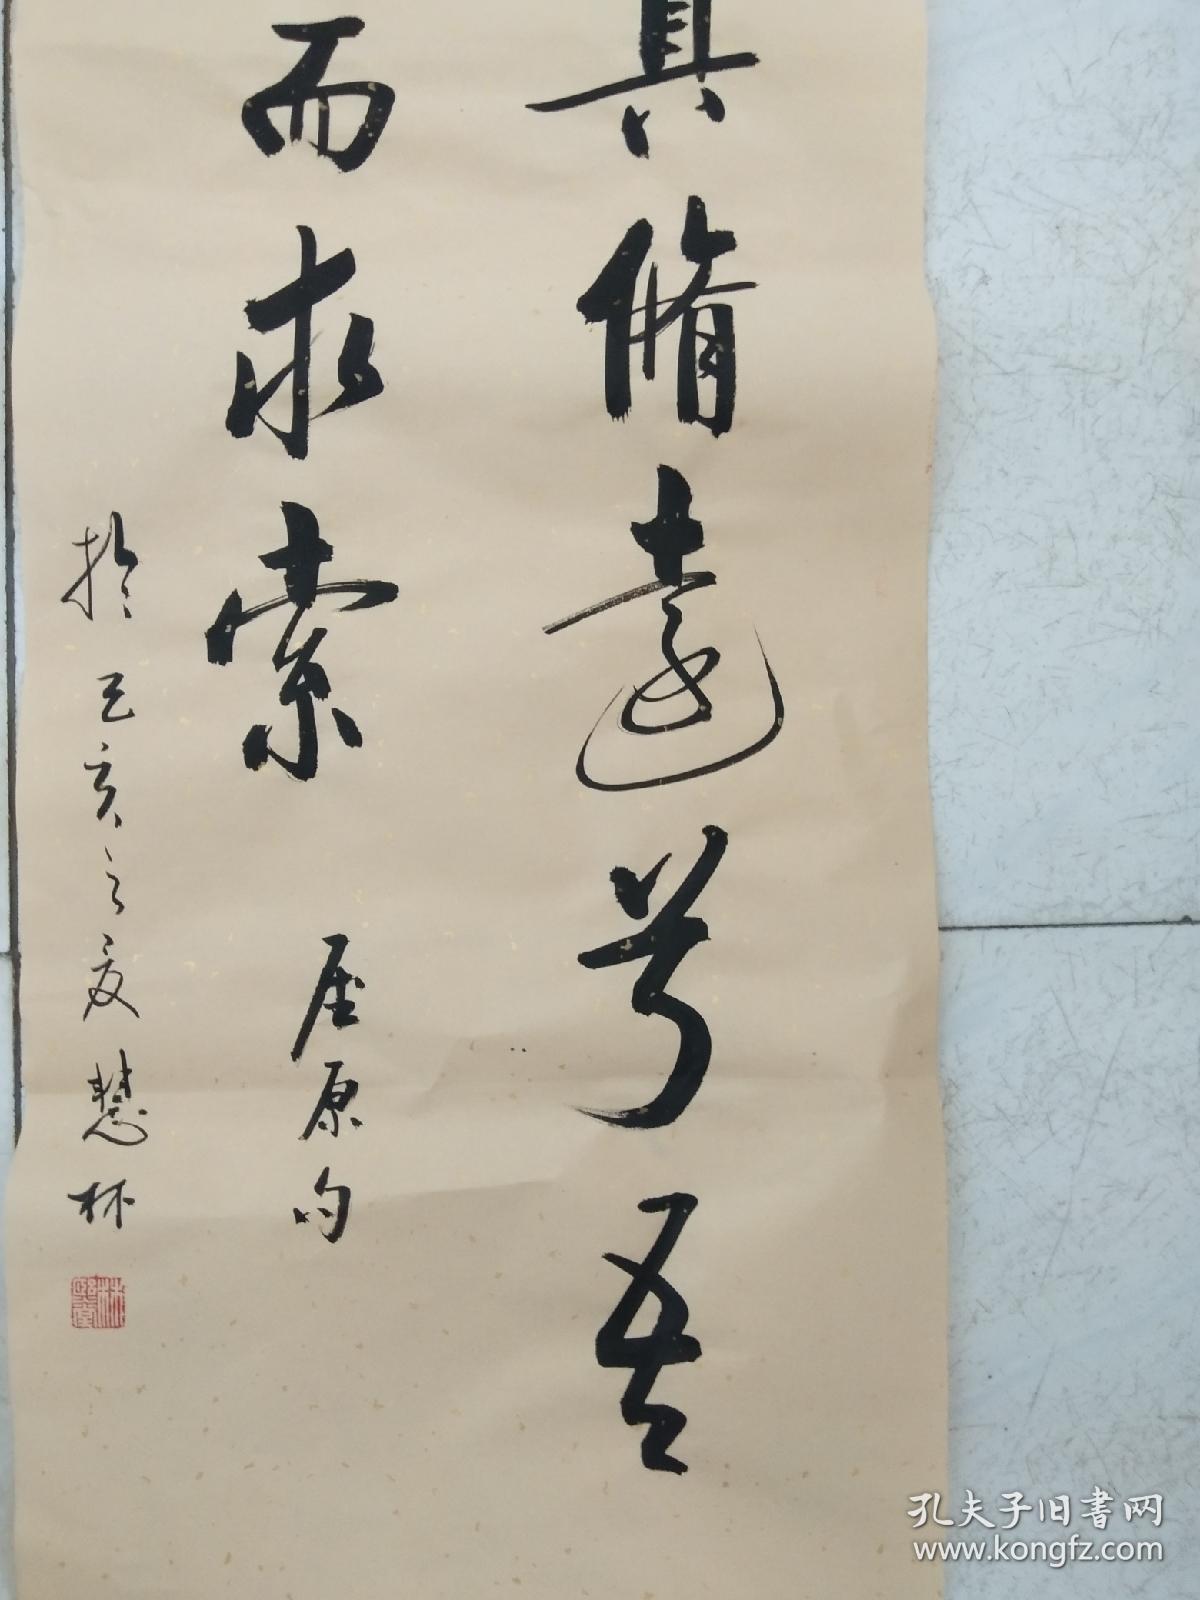 其脩遠兮吾
而求索
屈原句
於己亥之夏慧林
孔夫子旧书网
www.kongfz.com